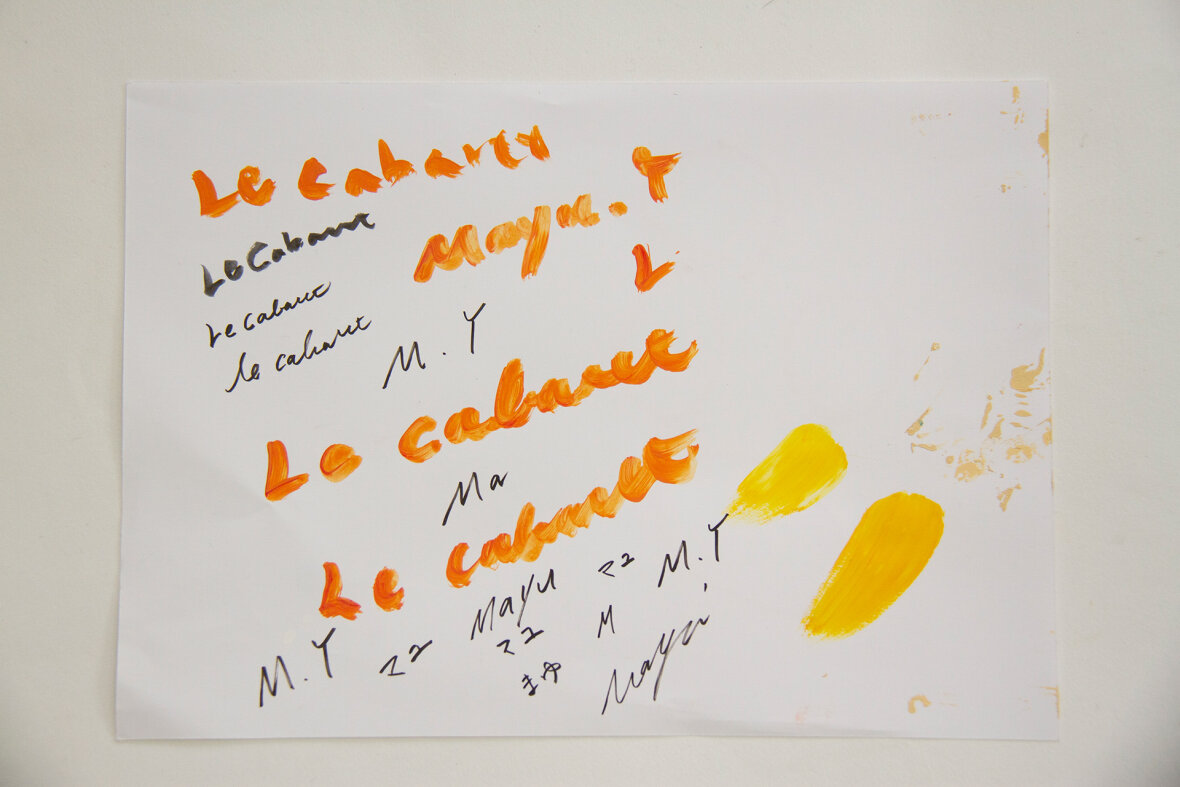 Le Cabaret
Le Cabaret
Mayu. Y
Le cabaret
L
le cabaret
M. Y
Le cabaret
Ma
Le cabaret
Mayu
22
M. Y
22
M
M. Y
22
まゆ
Mayu